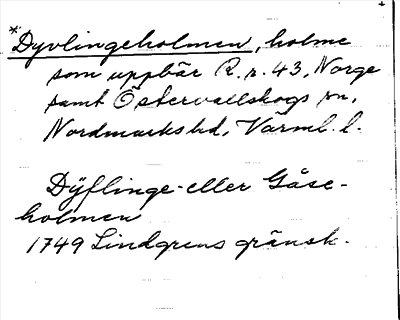 *Dyvlingeholmen, holme
som uppbär R.r. 43, Norge
samt Östervallskogs sn,
Nordmarks hd, Värml. l.
Dÿflinge- eller Gåse-
holmen
1749 Lindgrens gränsk.